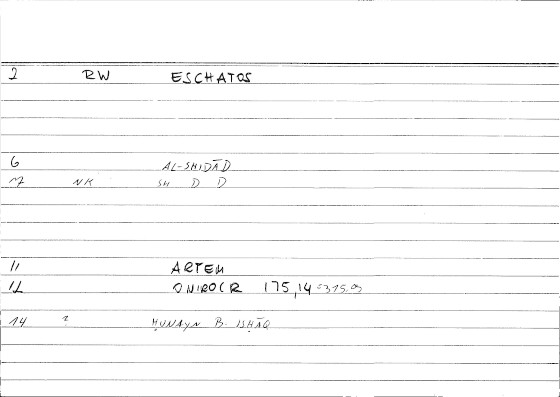 2 RW ESCHATOS
6 AL-SHIDĀD
7 NK SH D D
11 ARTEM
12 ONIROCR 175,14 = 315.09
14 2 ḤUNAYN B. ISḤĀQ